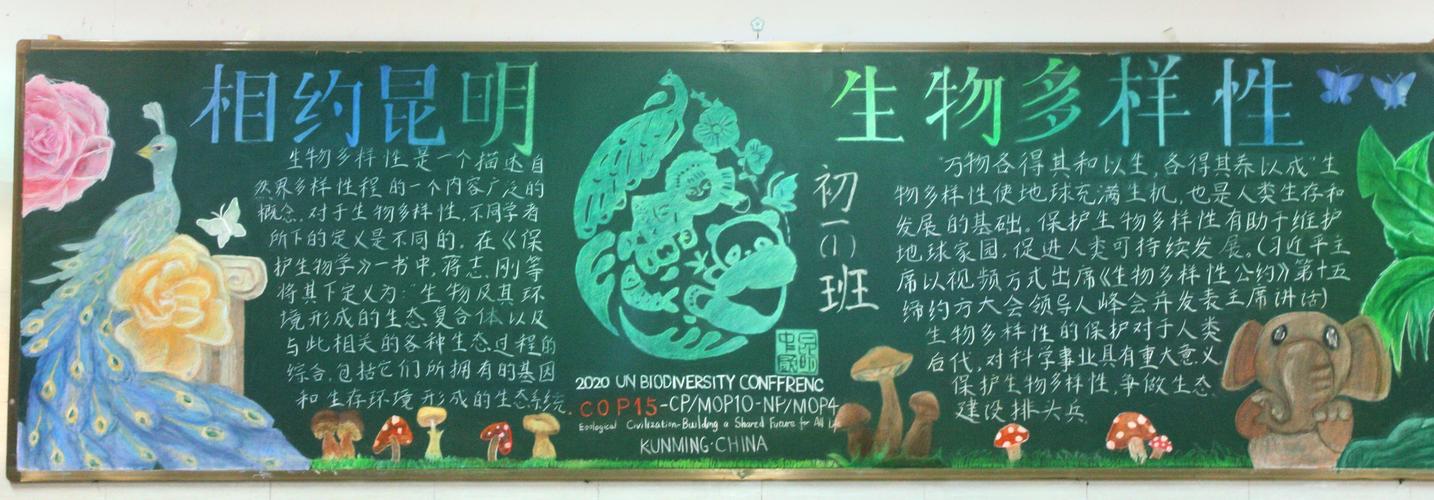 相约昆明
生物多样性是一个描述自
然界多样性程的一个内容广泛的
概念。对于生物多样性,不同学者
所下的定义是不同的。在《保
护生物学》一书中,蒋志刚等
将其下定义为:"生物及其环
境形成的生态复合体以及
与此相关的各种生态过程的
综合,包括它们所拥有的基因
和生存环境形成的生态系统.
初一(1)班
中国
昆明
2020 UN BIODIVERSITY CONFFRENC
COP15-CP/MOP10-NP/MOP4
Ecological Civilization-Building a Shared Future for All Life
KUNMING·CHINA
生物多样性
"万物各得其和以生,各得其养以成"生
物多样性使地球充满生机,也是人类生存和
发展的基础。保护生物多样性有助于维护
地球家园,促进人类可持续发展。(习近平主
席以视频方式出席《生物多样性公约》第十五
缔约方大会领导人峰会并发表主席讲话)
生物多样性的保护对于人类
后代,对科学事业具有重大意义
保护生物多样性,争做生态
建设排头兵